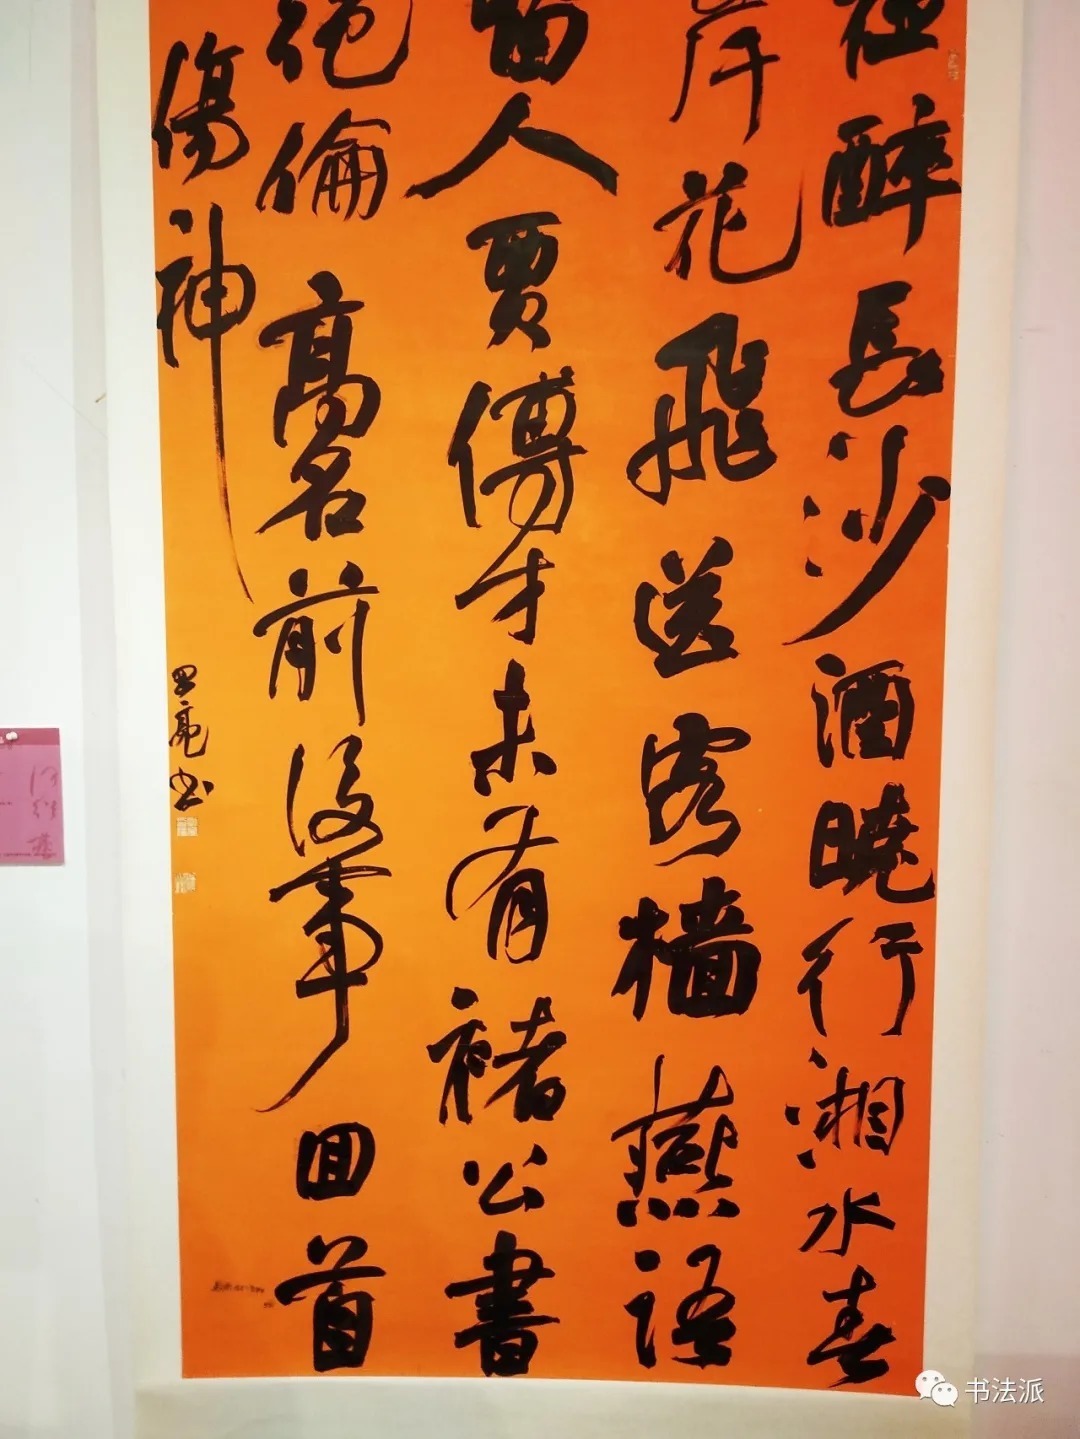 醉長沙酒曉行湘水春
岸花飛送客檣燕語
留人賈傅才未有褚公書
絕倫高名前後事回首
傷神
亮书
书法派